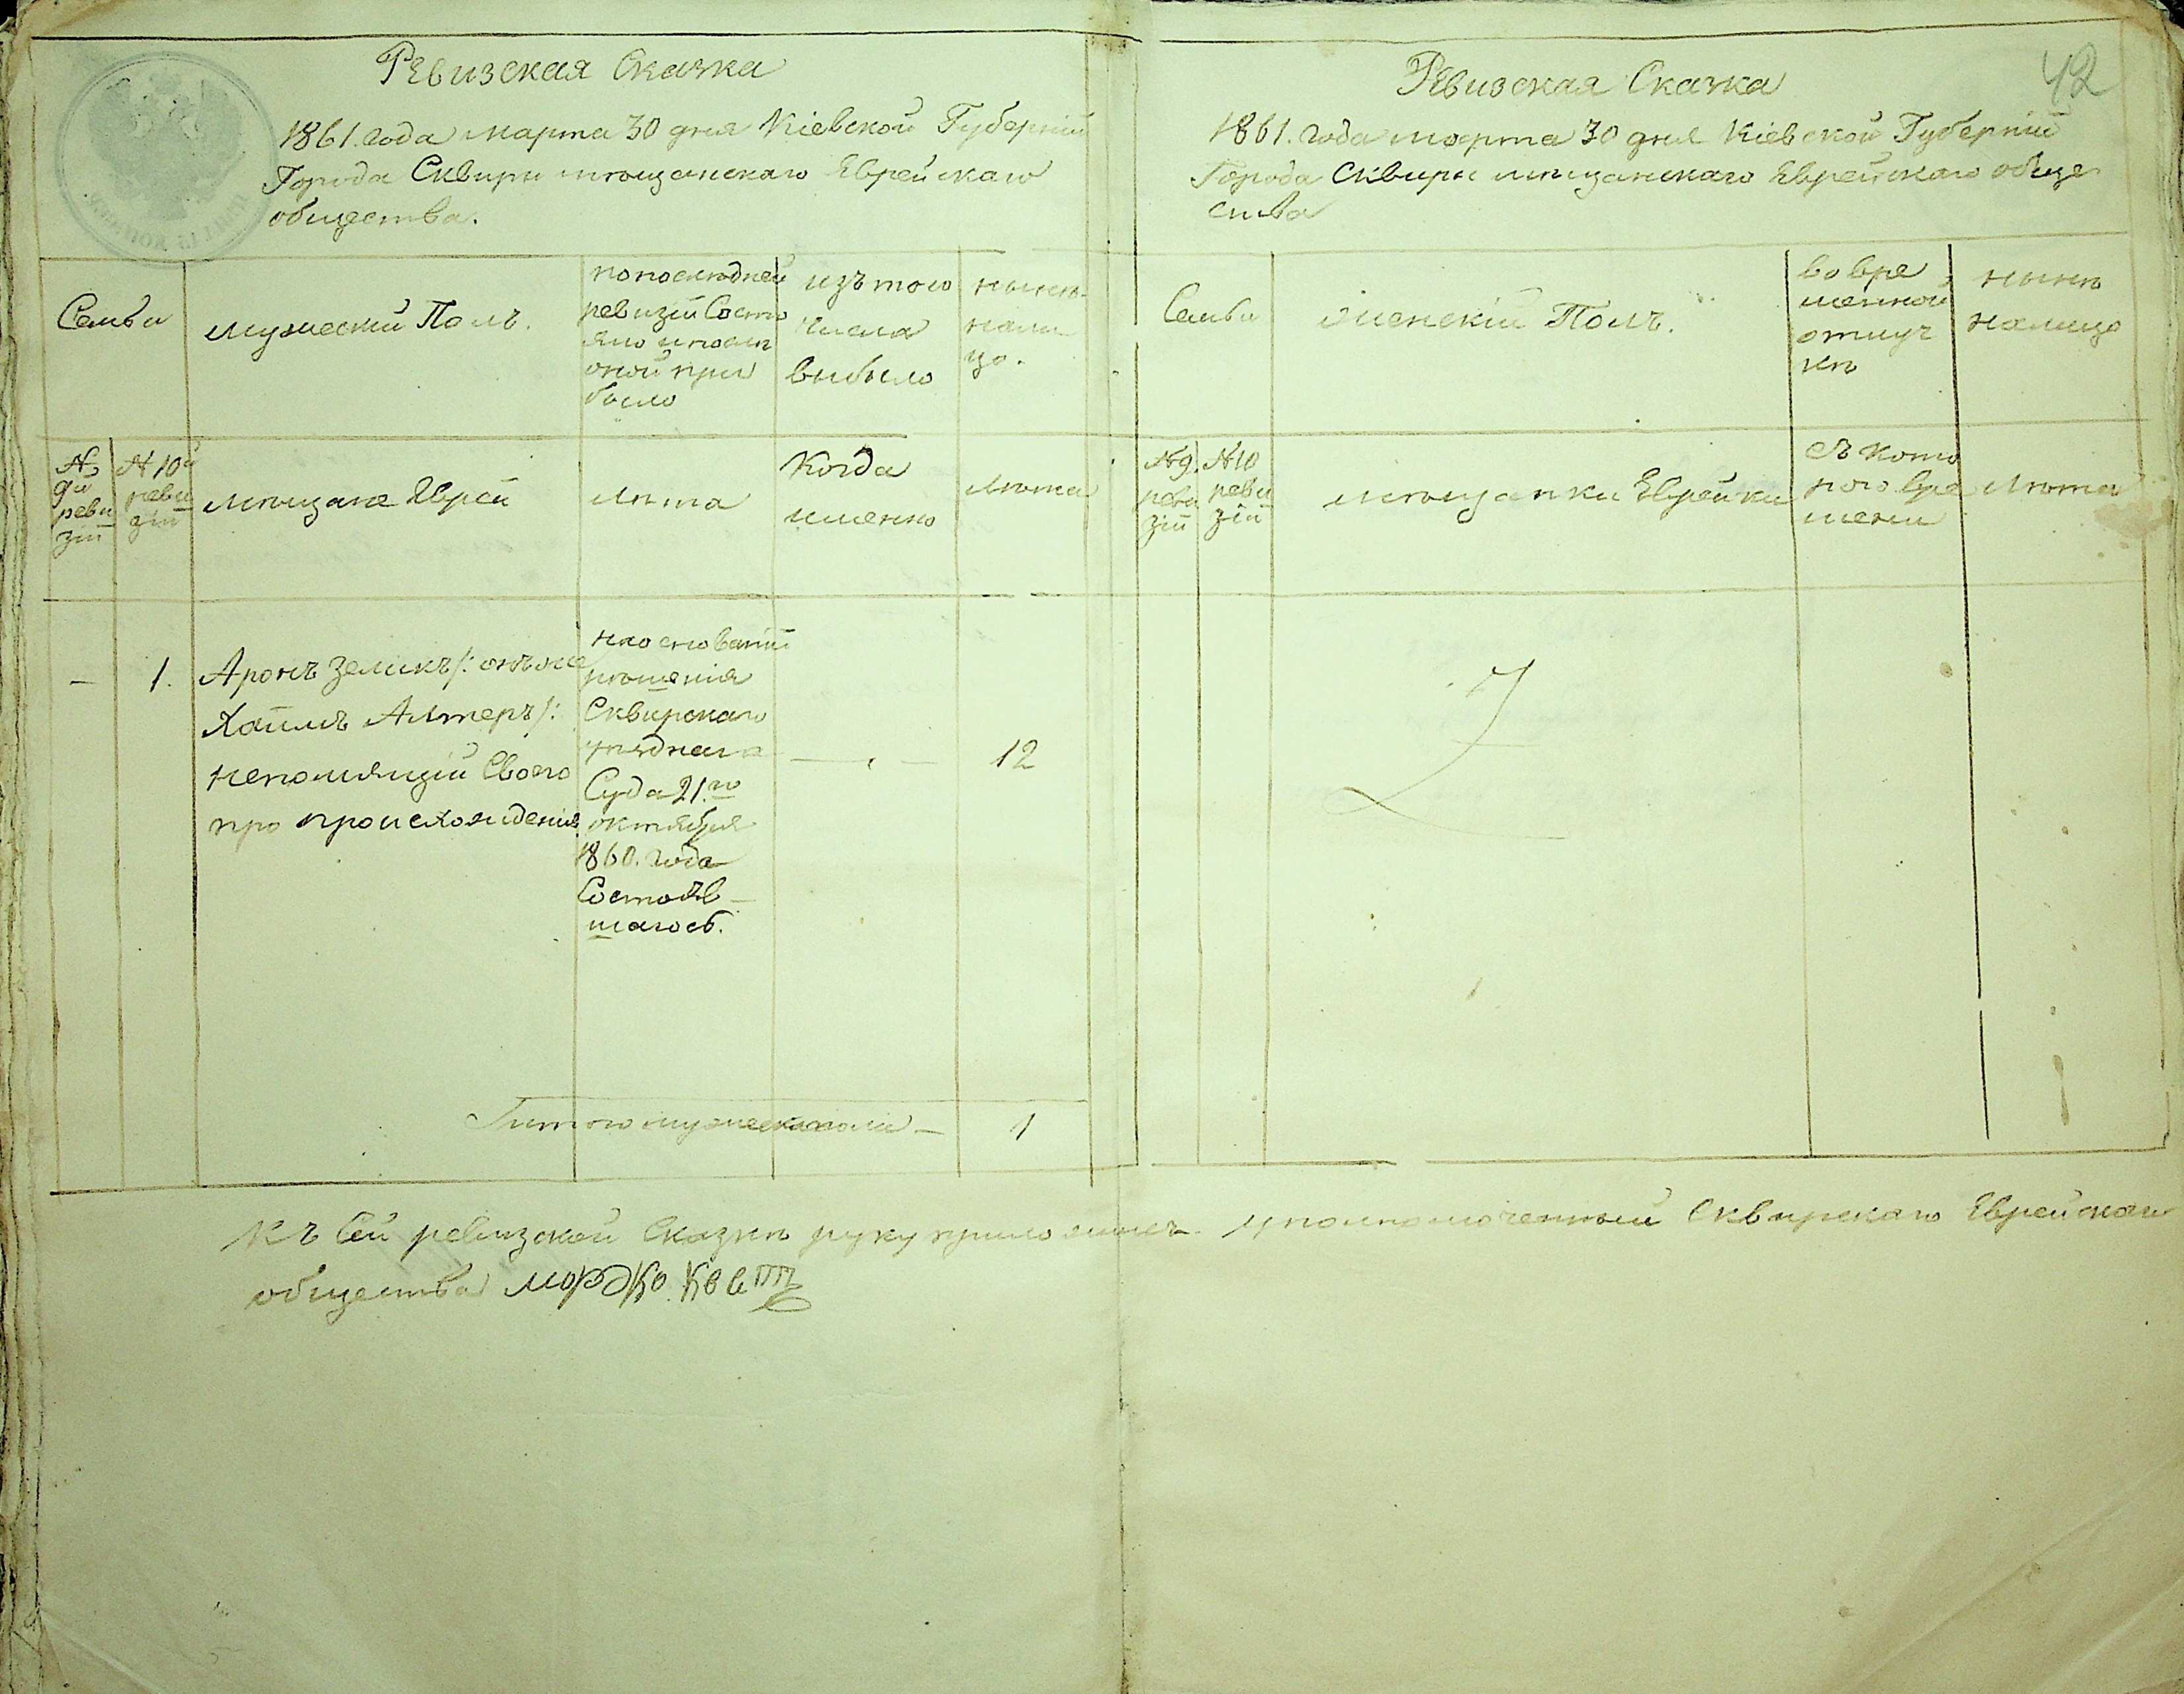 Ревизская Сказка
1861. года марта 30 дня Кіевской Губерніи
Города Сквиры мѣщанскаго Еврейскаго
общества.
Семьи
мужескій Полъ.
по последней
ревизіи Состо
яло и после
оной при
было
изъ того
числа
выбыло
нынѣ
нали
цо.
№
9й
реви
зіи
№ 10й
реви
зіи
мѣщане Евреи
лѣта
Когда
именно
лѣта
—
1.
Аронъ Зеликъ /: онъ же
Хаимъ Алтеръ /:
непомнящій Своего
про происхожденія
на основаніи
рѣшенія
Сквирскаго
уѣзднаго
Суда 21.го
октября
1860. года
Состояв
шагось.
12
Итого мужеска пола —
1
42
Ревизская Сказка
1861. года марта 30 дня Кіевской Губерніи
Города Сквиры мѣщанскаго Еврейскаго обще
ства
Семьи
женскій Полъ.
во вре
менной
отлуч
кѣ
нынѣ
налицо
№ 9.
реви
зіи
№ 10
реви
зіи
мѣщанки Еврейки
съ кото
рого вре
мени
лѣта
Къ Сей ревизской Сказкѣ руку приложилъ уполномоченный Сквирскаго Еврейскаго
общества мордко Квит